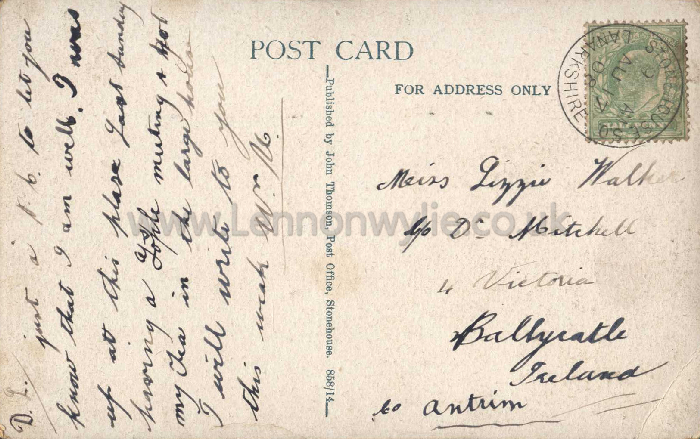 POST CARD
FOR ADDRESS ONLY
STONEHOUSE S.O.
LANARKSHIRE
AU 17
08
Published by John Thomson, Post Office, Stonehouse. 858/14
D. L.
just a P. C. to let you
know that I am well. I was
up at this place last Sunday
having a meeting & got
my tea in the large
I will write to you
this week Wm N.
Miss Lizzie Walker
c/o Dr Mitchell
4 Victoria
Ballycastle
Ireland
Co Antrim
www.Lennonwylie.co.uk